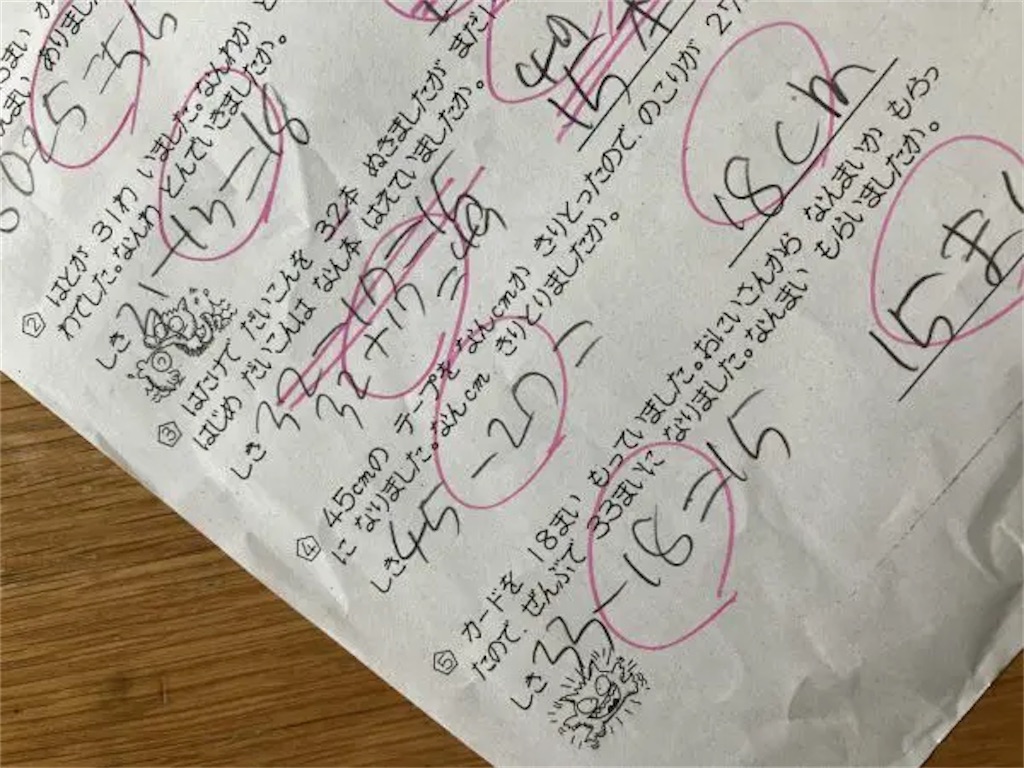 まい ありました
0-25=25
② はとが 31わ いました。なんわか と
わでした。なんわ とんでいきましたか。
しき 31-13=18
③ はたけで だいこんを 32本 ぬきましたが まだ
はじめ だいこんは なん本 はえていましたか。
しき 32-17=15
32+17=49
49
15本
④ 45cmの テープを なんcmか きりとったので、のこりが 27
に なりました。なんcm きりとりましたか。
しき 45-27=
18cm
⑤ カードを 18まい もっていました。おにいさんから なんまいか もらっ
たので、ぜんぶで 33まいに なりました。なんまい もらいましたか。
しき 33-18=15
15まい